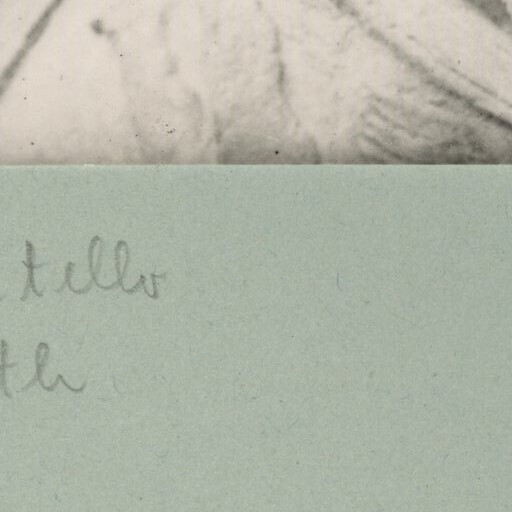 tello
th